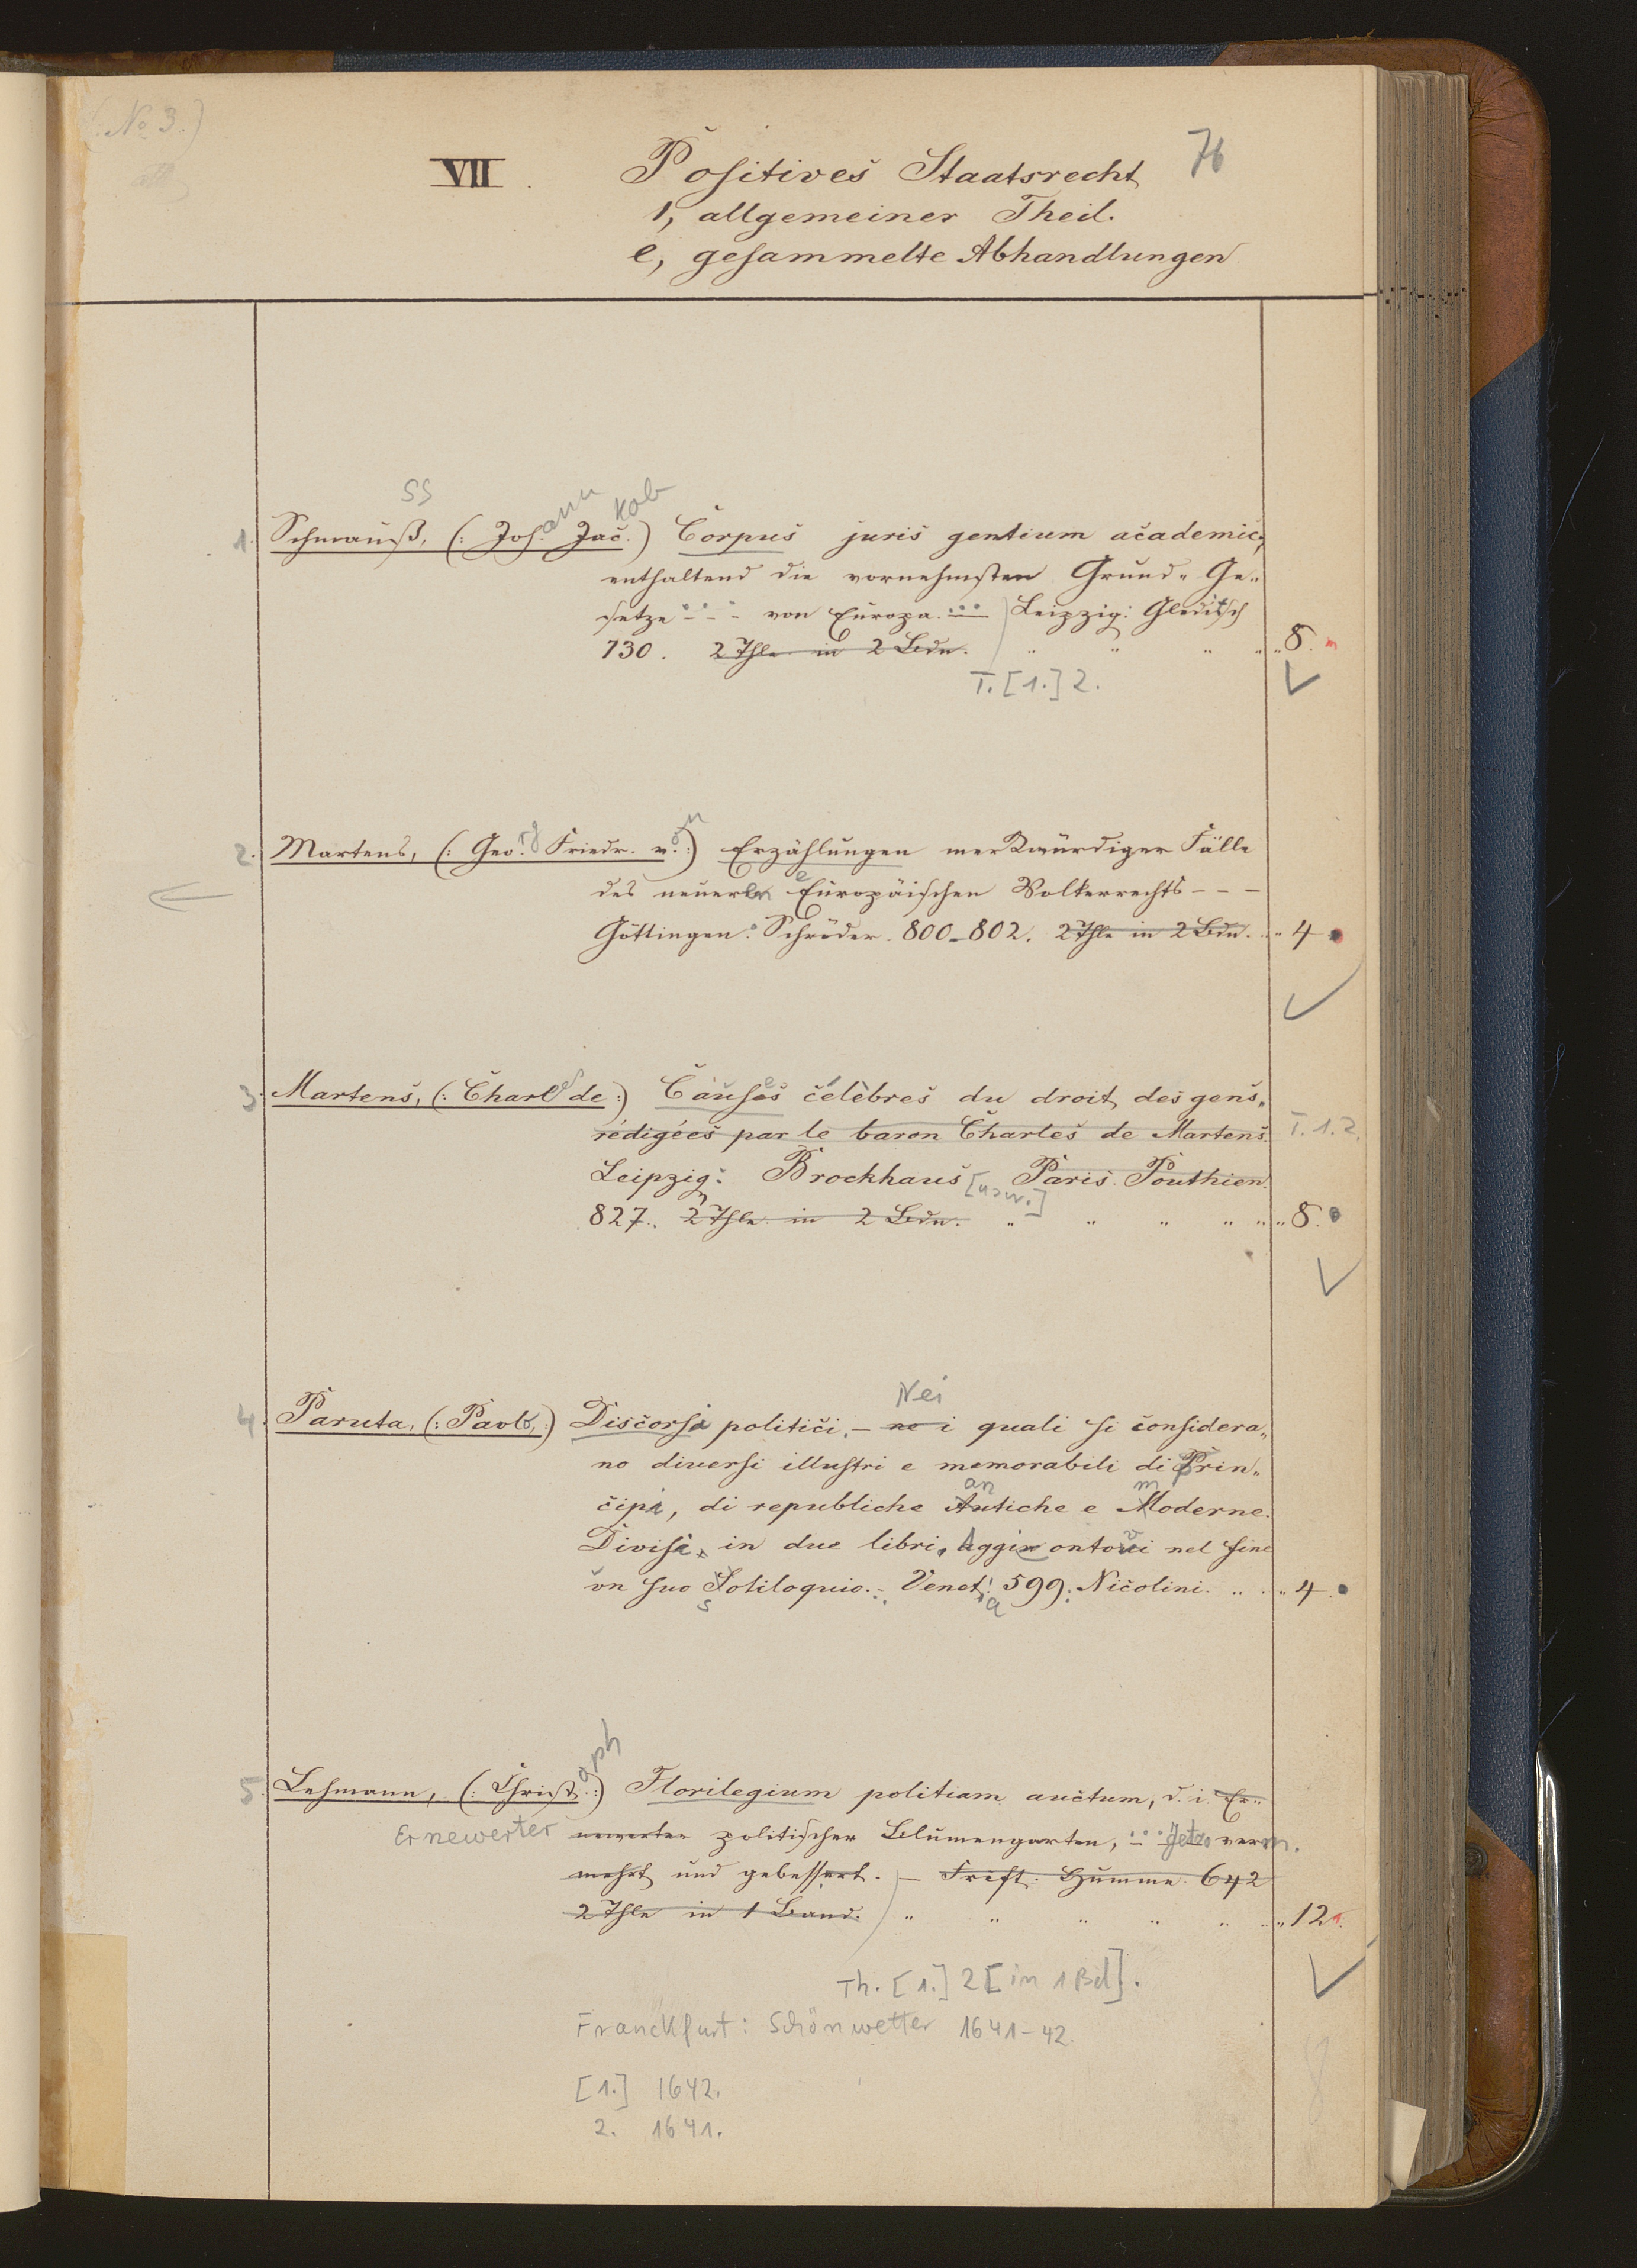 (No 3.)
76
VII. Positives Staatsrecht
1, allgemeiner Theil.
e, gesammelte Abhandlungen
ss ann kob
1. Schmauß, (: Joh. Jac. :) Corpus juris gentium academic,
enthaltend die vornehmsten Grund= Ge=
setze - - - von Europa. ... Leipzig: Gleditsch
730. 2 Thle in 2 Bdn. " " " " " 8.
T. [1.] 2.
rg on
2. Martens, (: Geo. Friedr. v. :) Erzählungen merkwürdiger Fälle
des neueren Europäischen Volkerrechts - - -
Göttingen: Schröder. 800-802. 2 Thle in 2 Bdn. " 4
3. Martens, (: Charles de :) Causes célèbres du droit des gens,
rédigées par le baron Charles de Martens. T. 1. 2.
Leipzig: Brockhaus [usw.] Paris. Pouthien.
827. 2 Thle in 2 Bdn. " " " " " 8.
Nei
4. Paruta, (: Paolo, :) Discorsi politici, - ne i quali si considera=
no diversi illustri e memorabili di Prin=
an m
cipi, di republiche Antiche e Moderne.
Divisi, in due libri, Aggiontovi nel fine
vn suo Soliloquio. Venet. 599. Nicolini. " " 4.
s a
oph
5. Lehmann, (: Christ. :) Florilegium politiam auctum, d. i. Er=
Ernewerter newerter politischer Blumengarten, ... Jetzo verm.
mehrt und gebessert. - Frcft: Humme. 642
2 Thle in 1 Band. " " " " " " 12.
Th. [1.] 2 [in 1 Bd].
Franckfurt: Schönwetter 1641-42.
[1.] 1642.
2. 1641.